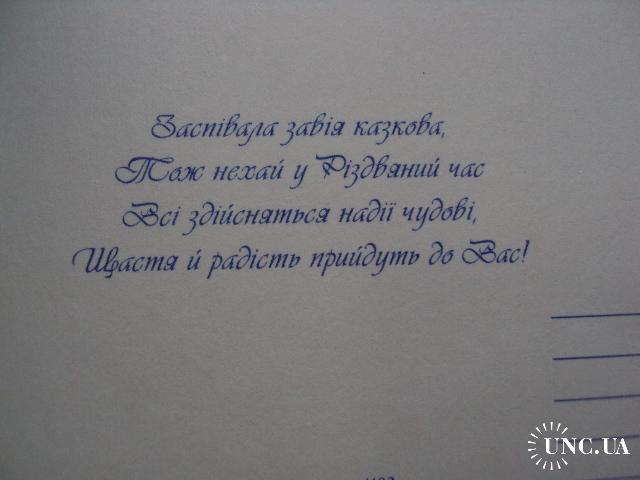 Заспівала завія казкова,
Тож нехай у Різдвяний час
Всі здійсняться надії чудові,
Щастя й радість прийдуть до Вас!
UNC.UA